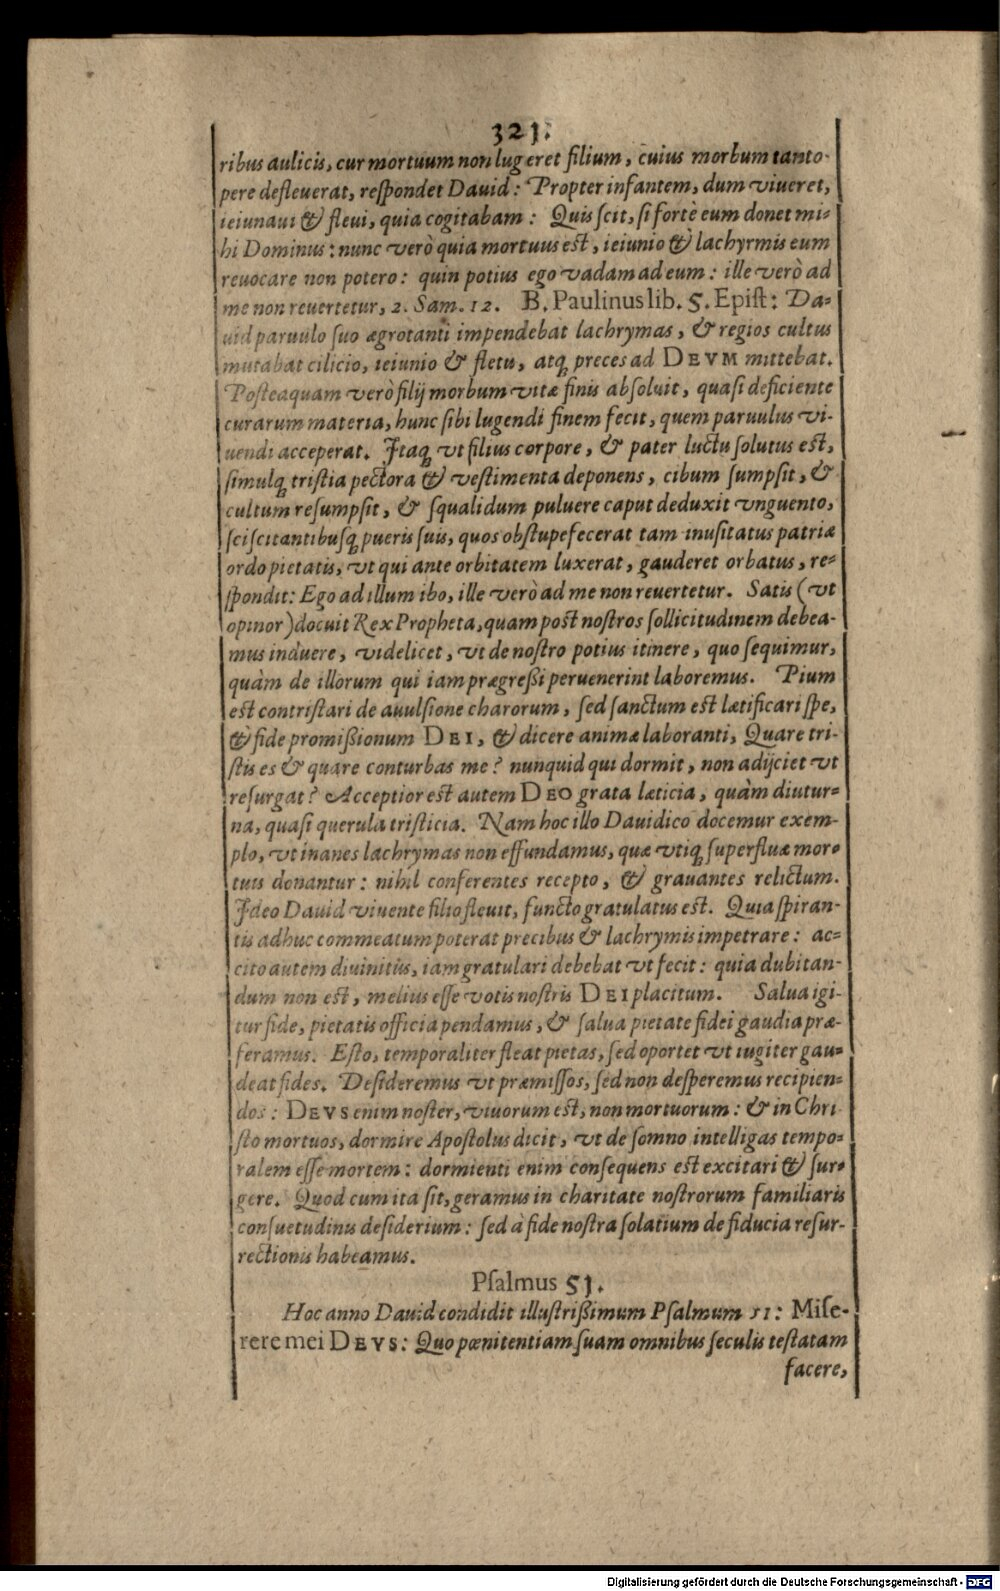 321.
ribus aulicis, cur mortuum non lugeret filium, cuius morbum tanto-
pere defleuerat, reſpondet Dauid: Propter infantem, dum viueret,
ieiunaui & fleui, quia cogitabam: Quis ſcit, ſi fortè eum donet mi-
hi Dominus: nunc verò quia mortuus eſt, ieiunio & lachrymis eum
reuocare non potero: quin potius ego vadam ad eum: ille verò ad
me non reuertetur, 2. Sam. 12. B. Paulinus lib. 5. Epiſt: Da-
uid paruulo ſuo ægrotanti impendebat lachrymas, & regios cultus
mutabat cilicio, ieiunio & fletu, atq; preces ad DEVM mittebat.
Poſteaquam verò filij morbum vitæ finis abſoluit, quaſi deficiente
curarum materia, hunc ſibi lugendi finem fecit, quem paruulus vi-
uendi acceperat. Itaq; vt filius corpore, & pater luctu ſolutus eſt,
ſimulq; triſtia pectora & veſtimenta deponens, cibum ſumpſit, &
cultum reſumpſit, & ſqualidum puluere caput deduxit vnguento,
ſciſcitantibuſq; pueris ſuis, quos obſtupefecerat tam inuſitatus patriæ
ordo pietatis, vt qui ante orbitatem luxerat, gauderet orbatus, re-
ſpondit: Ego ad illum ibo, ille verò ad me non reuertetur. Satis (vt
opinor) docuit Rex Propheta, quam poſt noſtros ſollicitudinem debea-
mus induere, videlicet, vt de noſtro potius itinere, quo ſequimur,
quàm de illorum qui iam prægreßi peruenerint laboremus. Pium
eſt contriſtari de auulſione charorum, ſed ſanctum eſt lætificari ſpe,
& fide promißionum DEI, & dicere animæ laboranti, Quare tri-
ſtis es & quare conturbas me? nunquid qui dormit, non adijciet vt
reſurgat? Acceptior eſt autem DEO grata læticia, quàm diutur-
na, quaſi querula triſticia. Nam hoc illo Dauidico docemur exem-
plo, vt inanes lachrymas non effundamus, quæ vtiq; ſuperfluæ mor-
tuis donantur: nihil conferentes recepto, & grauantes relictum.
Ideo Dauid viuente filio fleuit, functo gratulatus eſt. Quia ſpiran-
tis adhuc commeatum poterat precibus & lachrymis impetrare: ac-
cito autem diuinitùs, iam gratulari debebat vt fecit: quia dubitan-
dum non eſt, melius eſſe votis noſtris DEI placitum. Salua igi-
tur fide, pietatis officia pendamus, & ſalua pietate fidei gaudia præ-
feramus. Eſto, temporaliter fleat pietas, ſed oportet vt iugiter gau-
deat fides. Deſideremus vt præmiſſos, ſed non deſperemus recipien-
dos: DEVS enim noſter, viuorum eſt, non mortuorum: & in Chri
ſto mortuos, dormire Apoſtolus dicit, vt de ſomno intelligas tempo-
ralem eſſe mortem: dormienti enim conſequens eſt excitari & ſur-
gere. Quod cum ita ſit, geramus in charitate noſtrorum familiaris
conſuetudinis deſiderium: ſed à fide noſtra ſolatium de fiducia reſur-
rectionis habeamus.
Pſalmus 51.
Hoc anno Dauid condidit illuſtrißimum Pſalmum 51: Miſe-
rere mei DEVS: Quo pœnitentiam ſuam omnibus ſeculis teſtatam
facere,
Digitalisierung gefördert durch die Deutsche Forschungsgemeinschaft - DFG